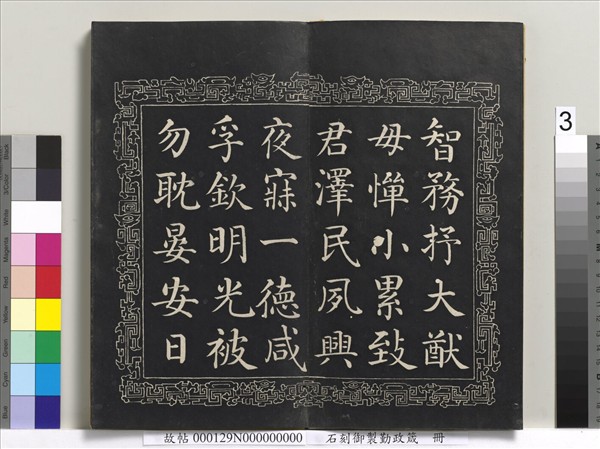 智務抒大猷
毋憚小累致
君澤民夙興
夜寐一德咸
孚欽明光被
勿耽晏安日
3
故帖 000129N000000000 石刻御製勤政箴 冊
Black
3/Color
White
Magenta
Red
Yellow
Green
Cyan
Blue